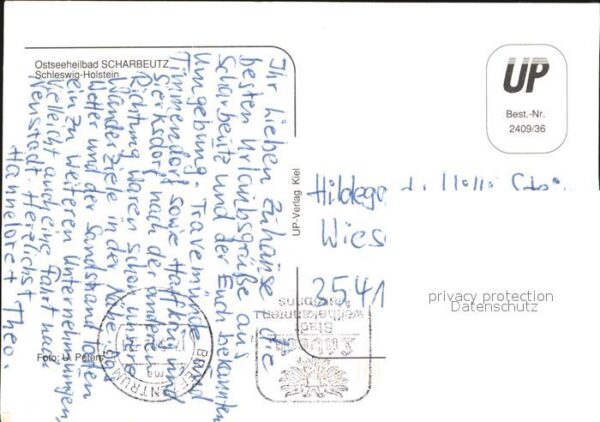 Ostseeheilbad SCHARBEUTZ
Schleswig-Holstein
Ihr Lieben Zuhause die
besten Urlaubsgrüße aus
Scharbeutz und der Euch bekannten
Umgebung. Travemünde
Timmendorf sowie Haffkrug und
Sierksdorf nach der anderen
Richtung waren schon unsere
Wanderziele in der Nähe. Das
Wetter und der Sandstrand laden
ein zu weiteren Unternehmungen,
vielleicht auch eine Fahrt nach
Neustadt. Herzlichst
Hannelore + Theo.
Foto: U. Peters
UP-Verlag Kiel
UP
Best.-Nr.
2409/36
Hildeg
Wies
2541
privacy protection
Datenschutz
Lübeck
Stadt
weltbekannten
BRIEFZENTRUM